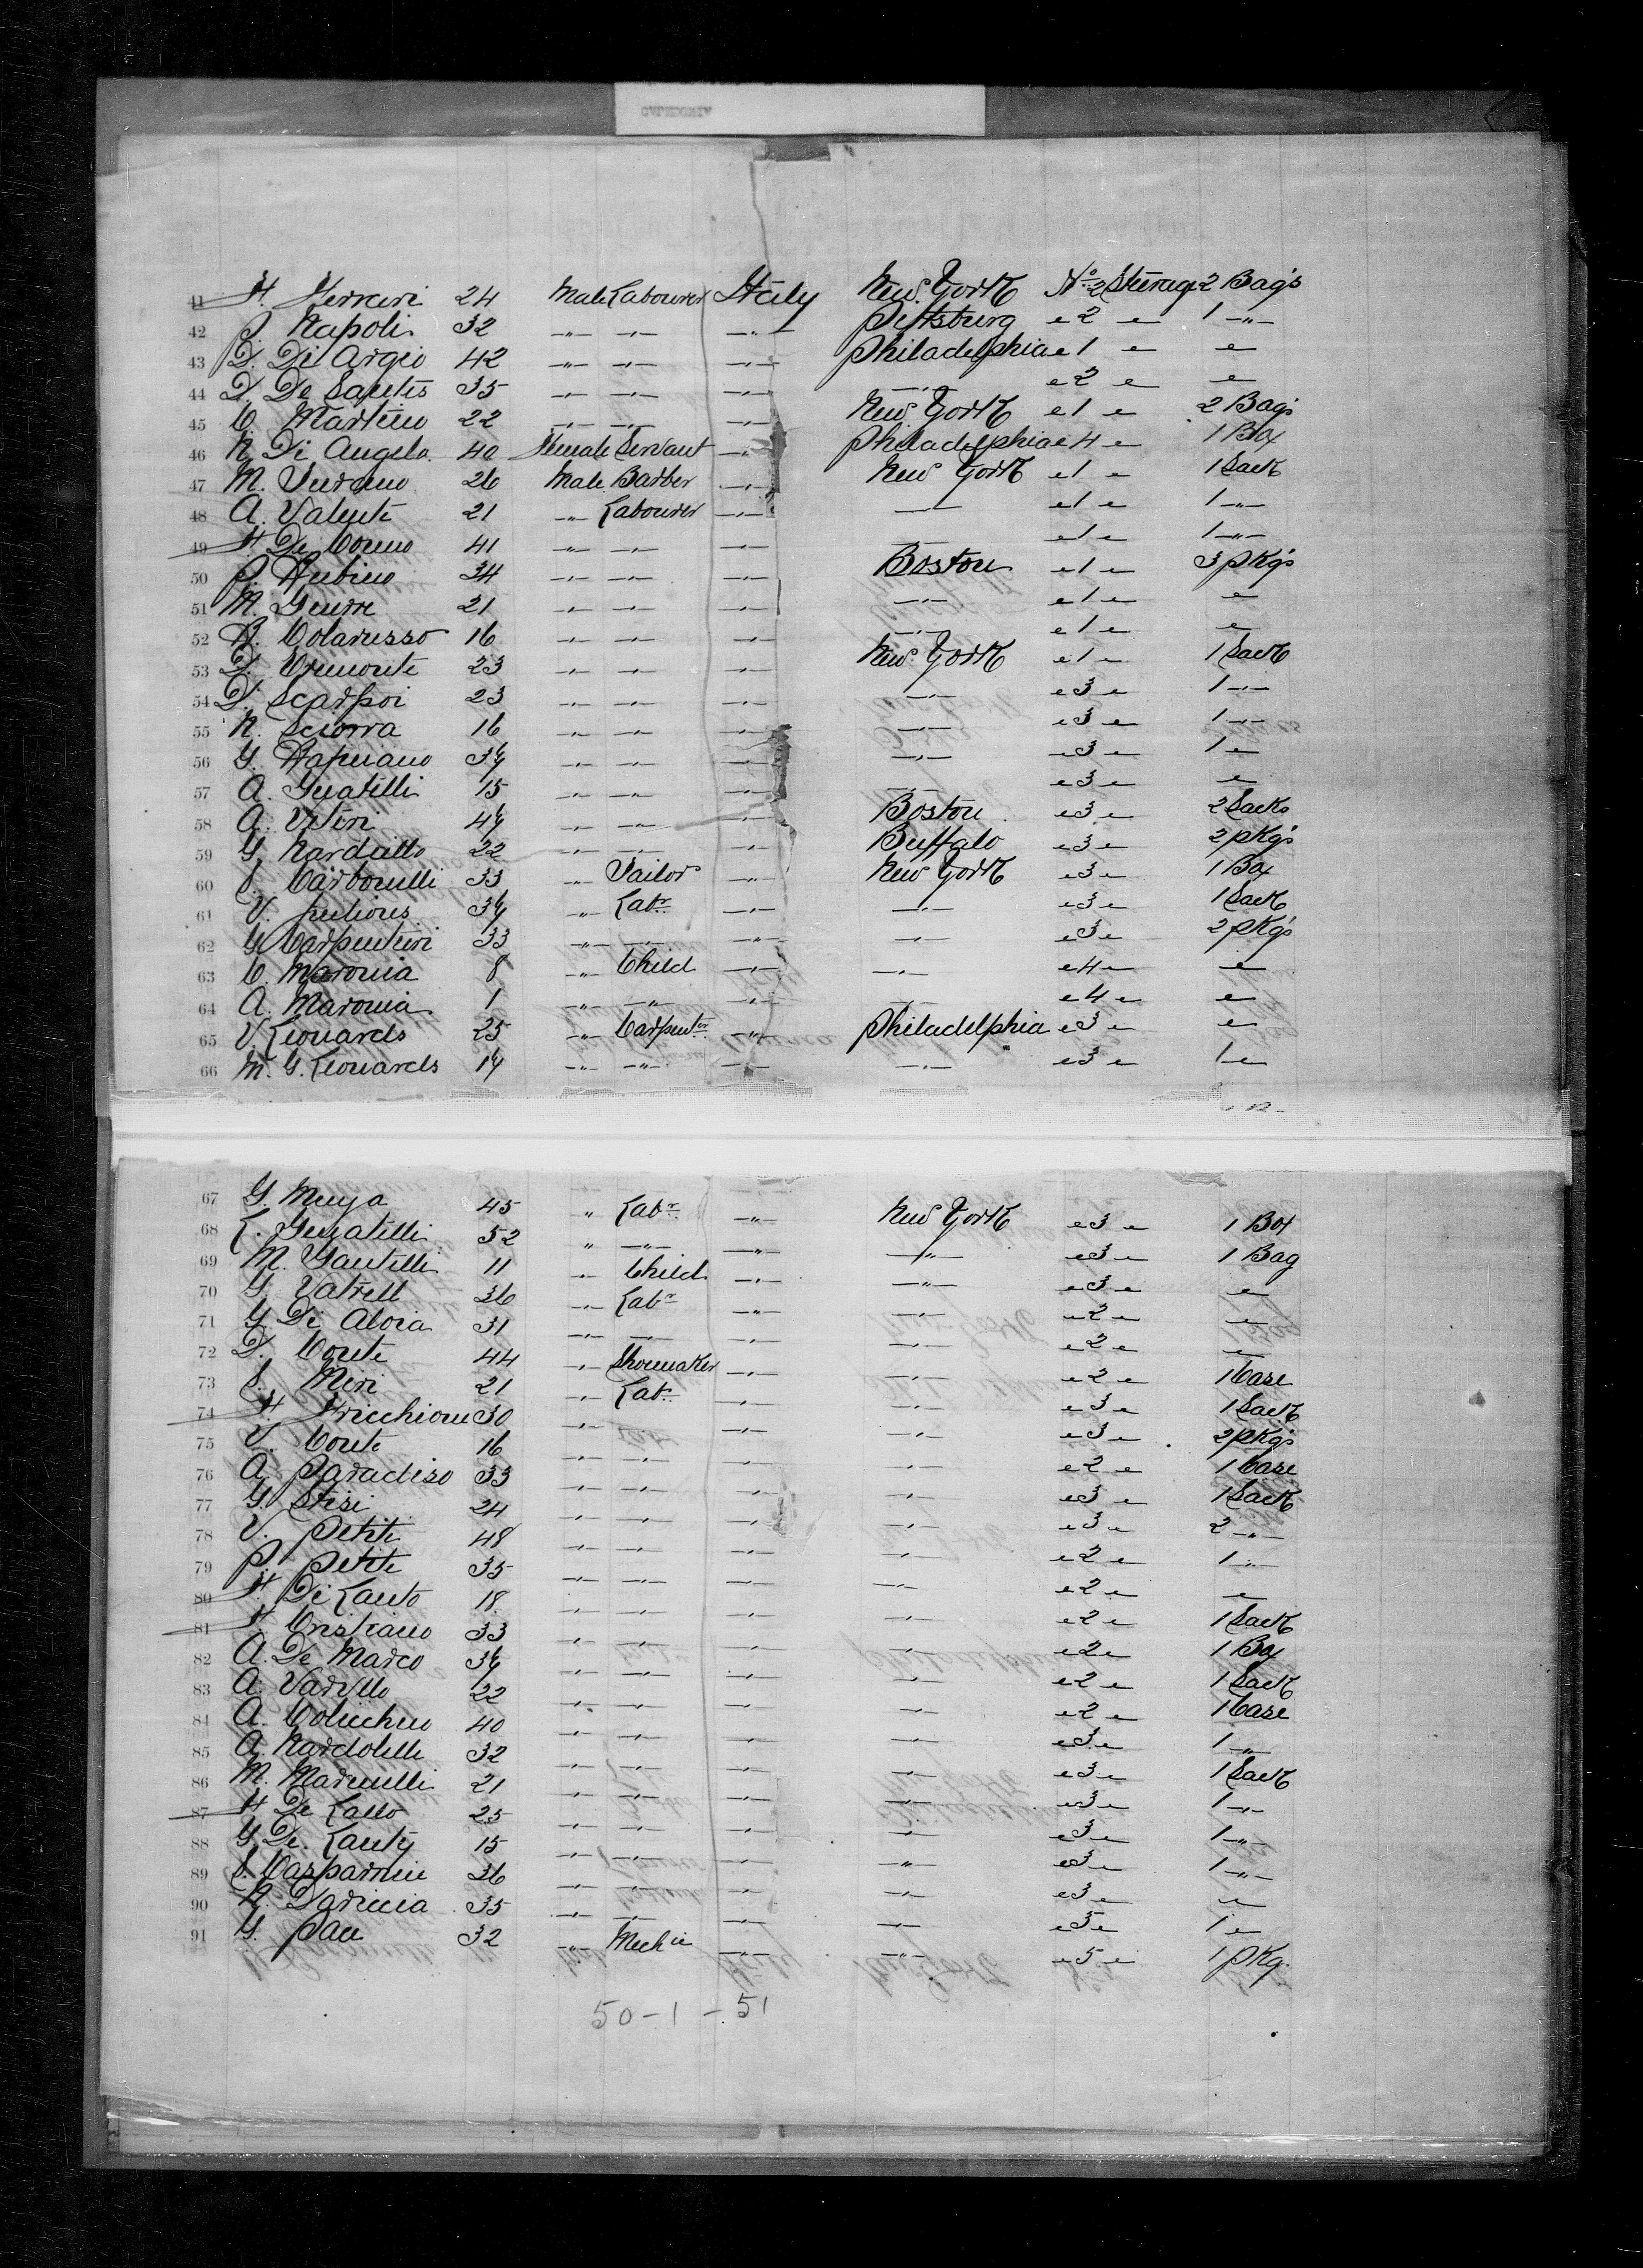 CALEDONIA
41 F. Ferrari 24 Male Labourer Italy New York No 2 Sterage 2 Bags
42 P. Napoli 32 -"- -"- -"- Pittsburg " 2 " 1 -"-
43 D. Di Argio 42 -"- -"- -"- Philadelphia " 1 " "
44 D. De Santis 35 -"- -"- -"- -"- " 2 " "
45 C. Martino 22 -"- -"- -"- New York " 1 " 2 Bags
46 N. Di Angelo 40 Female Servant -"- Philadelphia " 4 " 1 Box
47 M. 26 Male Barber -"- New York " 1 " 1 Sack
48 A. Valente 21 -"- Labourer -"- -"- " 1 " 1 -"-
49 F. De Cosmo 41 -"- -"- -"- -"- " 1 " 1 -"-
50 P. Rubino 34 -"- -"- -"- Boston " 1 " 3 pkgs
51 M. 21 -"- -"- -"- -"- " 1 " "
52 R. Colarusso 16 -"- -"- -"- -"- " 1 " "
53 D. 23 -"- -"- -"- New York " 1 " 1 Sack
54 D. Scarpoi 23 -"- -"- -"- -"- " 3 " 1 -"-
55 N. Sciorra 16 -"- -"- -"- -"- " 3 " 1 -"-
56 G. Rapuano 34 -"- -"- -"- -"- " 3 " 1 "
57 A. 15 -"- -"- -"- -"- " 3 " "
58 A. Viteri 44 -"- -"- -"- Boston " 3 " 2 Sacks
59 G. Nardullo 22 -"- -"- -"- Buffalo " 3 " 2 pkgs
60 S. Carbonelli 33 -"- Tailor -"- New York " 3 " 1 Box
61 V. 34 -"- Labr -"- -"- " 3 " 1 Sack
62 G. Carpenteri 33 -"- -"- -"- -"- " 3 " 2 pkgs
63 C. Maronia 8 -"- Child -"- -"- " 4 " "
64 A. Maronia 1 -"- -"- -"- -"- " 4 " "
65 V. Leonards 25 -"- Carpentr -"- Philadelphia " 3 " "
66 M. G. Leonards 14 -"- -"- -"- -"- " 3 " 1 "
67 G. 45 " Labr -"- New York " 3 " 1 Box
68 L. 52 " -"- -"- -"- " 3 " 1 Bag
69 M. Gantilli 11 -"- Child -"- -"- " 3 " "
70 G. Vatrell 36 -"- Labr -"- -"- " 2 " "
71 G. Di Aloia 31 -"- -"- -"- -"- " 2 " "
72 D. Conte 44 -"- Shoemaker -"- -"- " 2 " 1 Case
73 S. Miri 21 -"- Labr -"- -"- " 3 " 1 Sack
74 F. Fricchione 30 -"- -"- -"- " 3 " 2 pkgs
75 V. Conte 16 -"- -"- -"- -"- " 2 " 1 Case
76 A. Paradiso 33 -"- -"- -"- -"- " 3 " 1 Sack
77 G. Stisi 24 -"- -"- -"- -"- " 3 " 2 -"-
78 V. Petiti 48 -"- -"- -"- -"- " 2 " 1 -"-
79 P. Petiti 35 -"- -"- -"- -"- " 2 " "
80 F. Di Lauto 18 -"- -"- -"- -"- " 2 " 1 Sack
81 F. Cristiano 33 -"- -"- -"- -"- " 2 " 1 Box
82 A. De Marco 34 -"- -"- -"- -"- " 2 " 1 Sack
83 A. Varillo 22 -"- -"- -"- -"- " 2 " 1 Case
84 A. 40 -"- -"- -"- -"- " 3 " 1 -"-
85 A. Nardolelli 32 -"- -"- -"- -"- " 3 " 1 Sack
86 M. Marinelli 21 -"- -"- -"- -"- " 3 " 1 -"-
87 F. De Lallo 25 -"- -"- -"- -"- " 3 " 1 -"-
88 G. De Lauty 15 -"- -"- -"- -"- " 3 " 1 -"-
89 S. 36 -"- -"- -"- -"- " 3 " "
90 35 -"- -"- -"- -"- " 3 " 1 "
91 G. 32 -"- Mechic -"- -"- " 5 " 1 pkg.
50 - 1 - 51